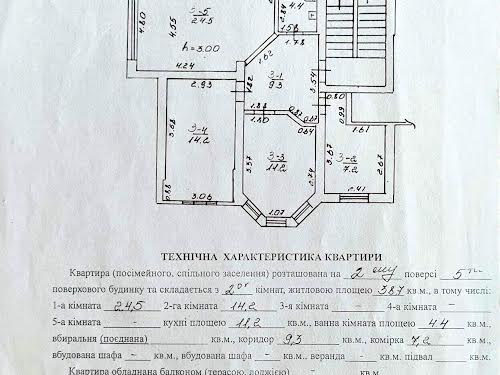 3-5
24.5
4.80
4.55
h=3.00
4.24
4.4
0.84
1.58
1.78
1.62
3-1
9.3
1.82
3.54
2.93
0.80
0.99
1.88
0.82
0.67
1.80
0.64
1.61
3.68
3-4
14.2
3.37
3-3
11.2
2.74
3.67
3-2
7.2
3.67
0.88
3.06
1.07
2.41
ТЕХНІЧНА ХАРАКТЕРИСТИКА КВАРТИРИ
Квартира (посімейного, спільного заселення) розташована на 2 ому поверсі 5 ти
поверхового будинку та складається з 2 ох кімнат, житловою площею 38.7 кв.м, в тому числі:
1-а кімната 24,5 2-га кімната 14,2 3-я кімната - 4-а кімната -
5-а кімната - кухні площею 11,2 кв.м., ванна кімната площею 4.4 кв.м
вбиральня (поєднана) кв.м., коридор 9,3 кв.м., комірка 7,2 кв.м.,
вбудована шафа - кв.м., вбудована шафа - кв.м., веранда - кв.м. підвал кв.м.
Квартира обладнана балконом (терасою, лоджією) - кв.м.